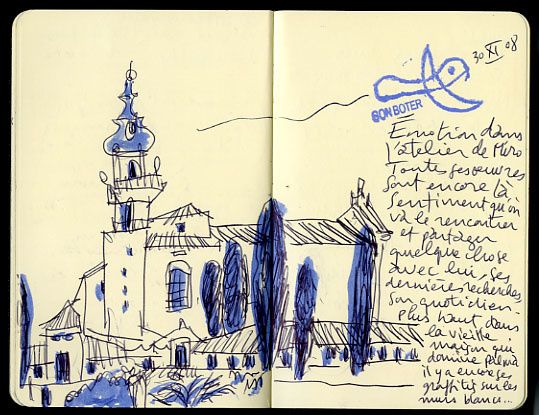 30 XI 08
SON BOTER
Émotion dans
l'atelier de Miro
Toutes ses œuvres
sont encore là,
Sentiment qu'on
va le rencontrer
et partager
quelque chose
avec lui, ses
dernières recherches
son quotidien.
Plus haut dans
la vieille
maison qui
domine Palma
il y a encore ses
graffitis sur les
murs blancs...